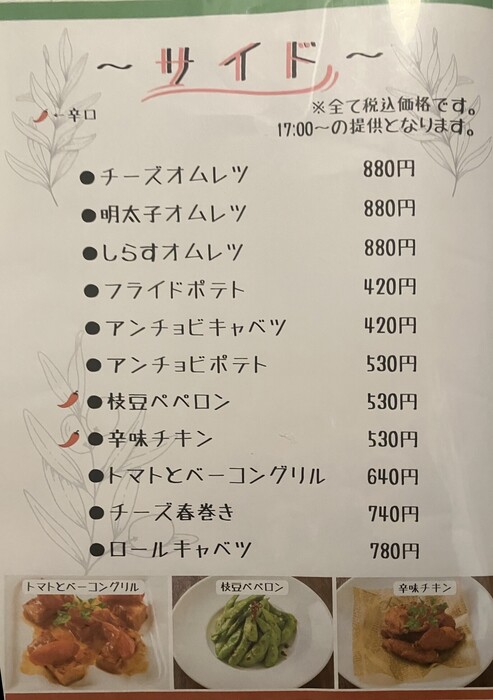 ～サイド～
←辛口
※全て税込価格です。
17:00～の提供となります。
●チーズオムレツ 880円
●明太子オムレツ 880円
●しらすオムレツ 880円
●フライドポテト 420円
●アンチョビキャベツ 420円
●アンチョビポテト 530円
●枝豆ペペロン 530円
●辛味チキン 530円
●トマトとベーコングリル 640円
●チーズ春巻き 740円
●ロールキャベツ 780円
トマトとベーコングリル
枝豆ペペロン
辛味チキン